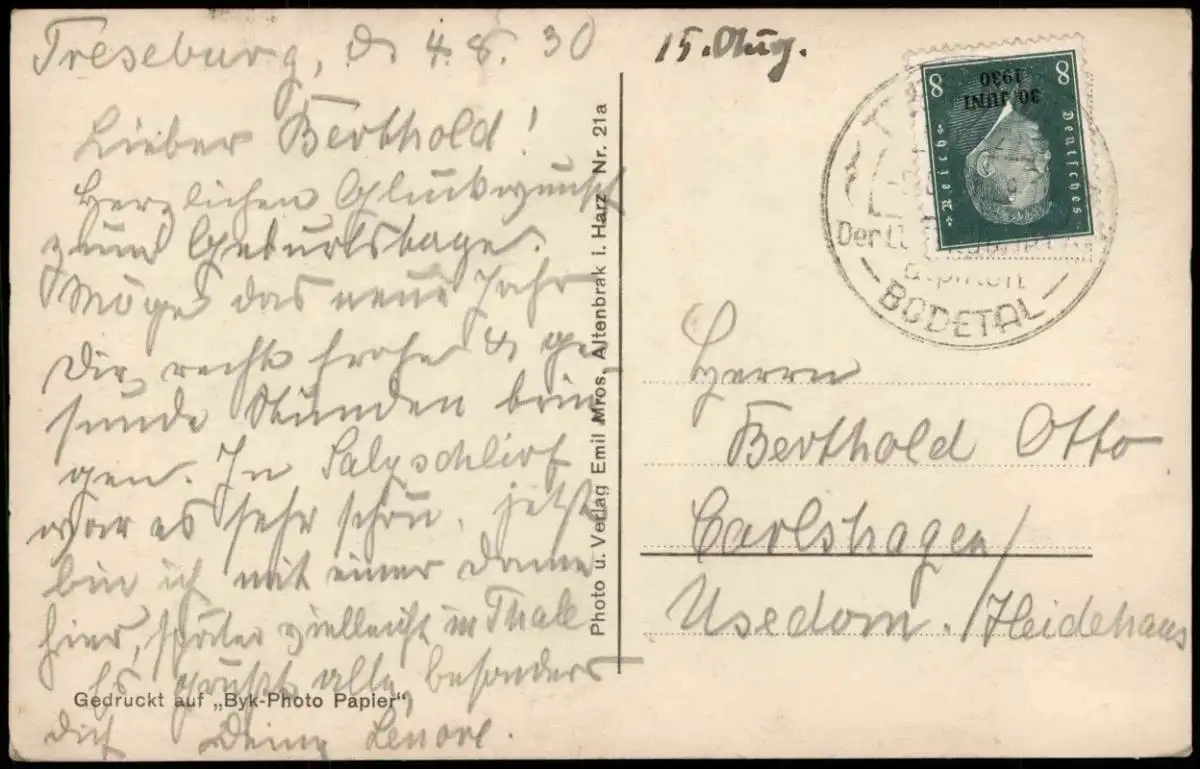 Treseburg, d. 4.8.30
Lieber Berthold!
Herzlichen Glückwunsch
zum Geburtstage.
Möge das neue Jahr
Dir recht frohe & ge
sunde Stunden brin
gen. In Salzschlirf
war es sehr schön, jetzt
bin ich mit einer Dame
hier, später vielleicht in Thale
Es grüßt alle, besonders
dich Deine Lenore.
Gedruckt auf „Byk-Photo Papier“
Photo u. Verlag Emil Mros, Altenbrak i. Harz Nr. 21a
15. Aug.
8 8
30. JUNI
1930
Deutsches
Reich
Der
BODETAL
Herrn
Berthold Otto
Carlshagen/
Usedom. /Heidehaus